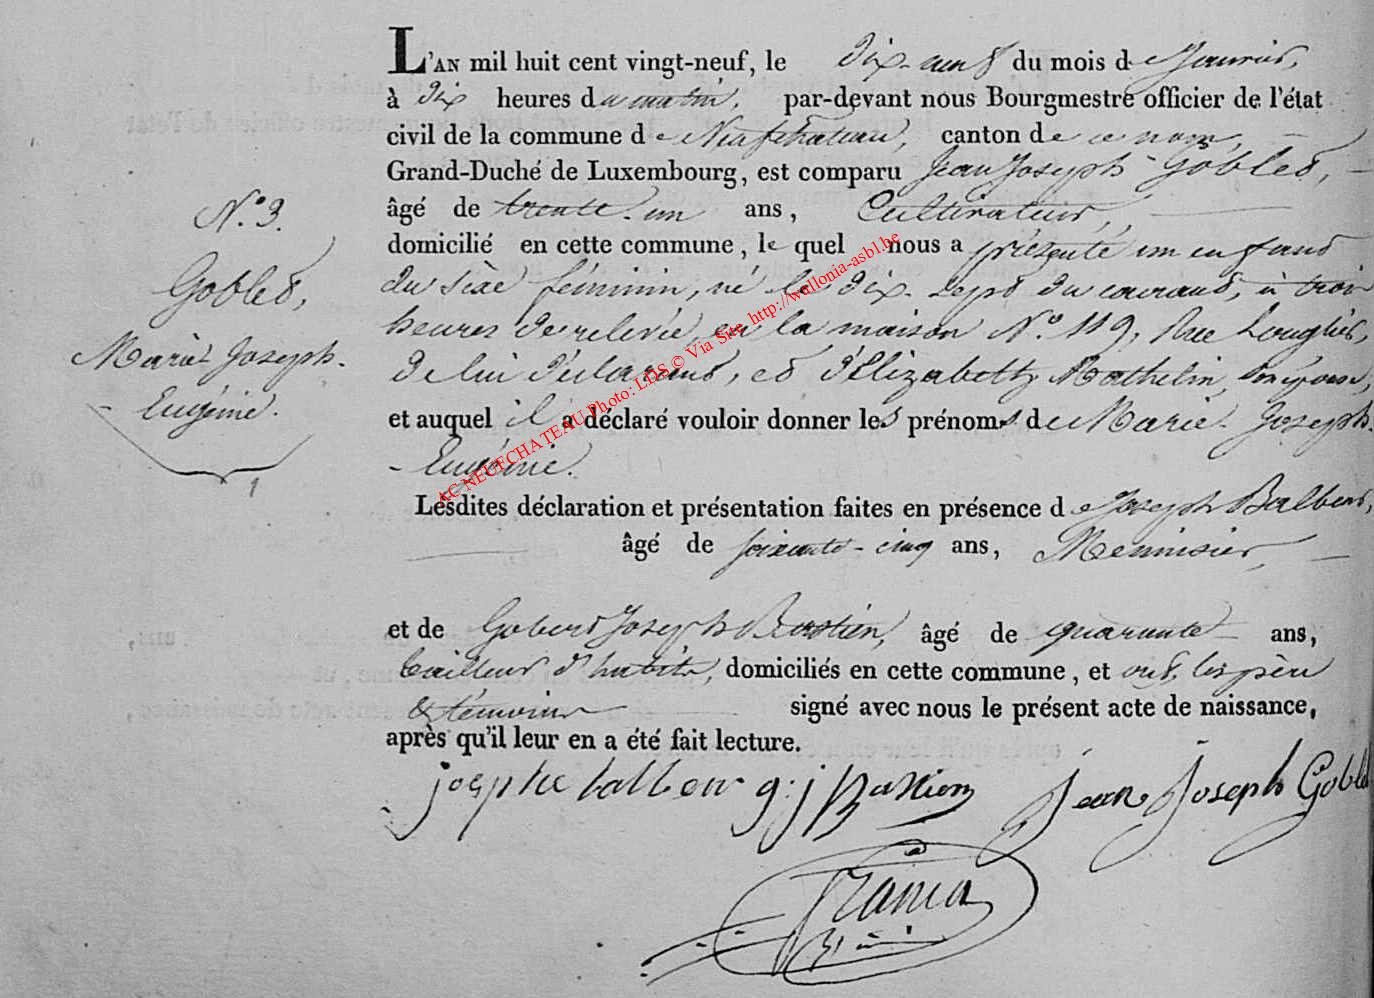 L'AN mil huit cent vingt-neuf, le dix-neuf du mois de Janvier,
à dix heures du matin, par-devant nous Bourgmestre officier de l'état
civil de la commune de Neufchateau, canton de ce nom,
Grand-Duché de Luxembourg, est comparu Jean Joseph Goblet,
âgé de trente-un ans, Cultivateur,
domicilié en cette commune, le quel nous a présenté un enfant
du sèxe féminin, né le dix-sept du courant, à trois
heures de relevée, en la maison N.º 119, Rue
de lui déclarant, et d'Elizabeth Mathelin, son épouse,
et auquel il a déclaré vouloir donner les prénoms de Marie-Joseph-
-Eugénie.
Lesdites déclaration et présentation faites en présence de Joseph Balbeur,
âgé de soixante-cinq ans, Menuisier,
et de Gobert Joseph Bastien, âgé de quarante ans,
tailleur d'habits, domiciliés en cette commune, et ont, les père
& témoins signé avec nous le présent acte de naissance,
après qu'il leur en a été fait lecture.
N.º 3.
Goblet,
Marie Joseph-
-Eugénie.
josephe balbeur g:j Bastien Jean Joseph Goblet
AC NEUFCHATEAU Photo: LDS © Via Site http://wallonia-asbl.be